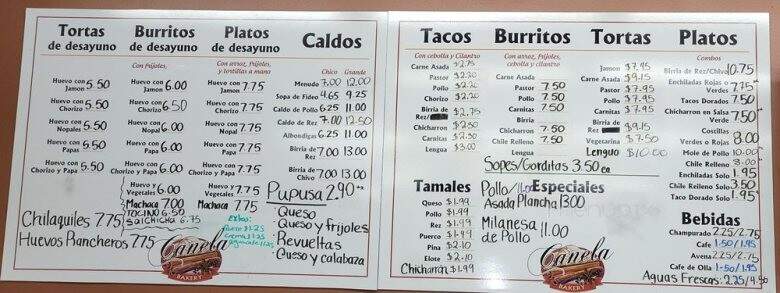 Tortas
de desayuno
Huevo con Jamon 5.50
Huevo con Chorizo 5.50
Huevo con Nopales 5.50
Huevo con Papas 5.50
Huevo con Chorizo y Papa 5.50
Chilaquiles 7.75
Huevos Rancheros 7.75
Burritos
de desayuno
Con frijoles,
Huevo con Jamon 6.00
Huevo con Chorizo 6.50
Huevo con Nopal 6.00
Huevo con Papa 6.00
Huevo con Chorizo y Papa 6.00
Huevo y Vegetales 6.00
Machaca 7.00
TOCINO 6.50
Salchicha 6.75
Platos
de desayuno
Con arroz, frijoles,
y tortillas a mano
Huevo con Jamon 7.75
Huevo con Chorizo 7.75
Huevo con Nopal 7.75
Huevo con Papa 7.75
Huevo con Chorizo y Papa 7.75
Huevo y Vegetales 7.75
Machaca 7.75
Extras:
Caldos
Chico Grande
Menudo 7.00 12.00
Sopa de Fideo 4.65 9.25
Caldo de Pollo 6.25 11.00
Caldo de Rez 7.00 12.50
Albondigas 6.25 11.00
Birria de Rez 7.00 13.00
Birria de Chivo 7.00 13.00
Pupusa 2.90
Queso
Queso y frijoles
Revueltas
Queso y calabaza
Canela
BAKERY
Tacos
Con cebolla y Cilantro
Carne Asada $2.75
Pastor $2.20
Pollo $2.20
Chorizo $2.20
Birria de Rez/ $2.75
Chicharron $2.50
Carnitas $2.50
Lengua $3.00
Burritos
Con arroz, frijoles,
cebolla y cilantro
Carne Asada
Pastor 7.50
Pollo 7.50
Carnitas 7.50
Birria
Chicharron 7.50
Chile Relleno 7.50
Lengua
Sopes/Gorditas 3.50 ea
Tortas
Jamon $7.95
Carne Asada $9.15
Pastor $7.95
Pollo $7.95
Carnitas $7.95
Birria de Rez $9.15
Vegetariana $7.50
Lengua $10.00
Platos
Combos
Birria de Rez/Chivo 10.75
Enchiladas Rojas o Verdes 7.75
Tacos Dorados 7.50
Chicharron en Salsa Verde 7.50
Costillas Verdes o Rojas 8.00
Mole de Pollo 10.00
Chile Relleno 8.00
Enchiladas Solo 1.95
Chile Relleno Solo 3.50
Taco Dorado Solo 1.95
Tamales
Queso $1.99
Pollo $1.99
Rez $1.99
Puerco $1.99
Pina $2.10
Elote $2.10
Chicharrón $1.99
Especiales
Pollo/
Asada Plancha 13.00
Milanesa de Pollo 11.00
Canela
BAKERY
Bebidas
Champurado 2.25/2.75
Cafe 1.50/1.95
Avena 2.25/2.75
Cafe de Olla 1.50/1.95
Aguas Frescas: 2.25/4.50